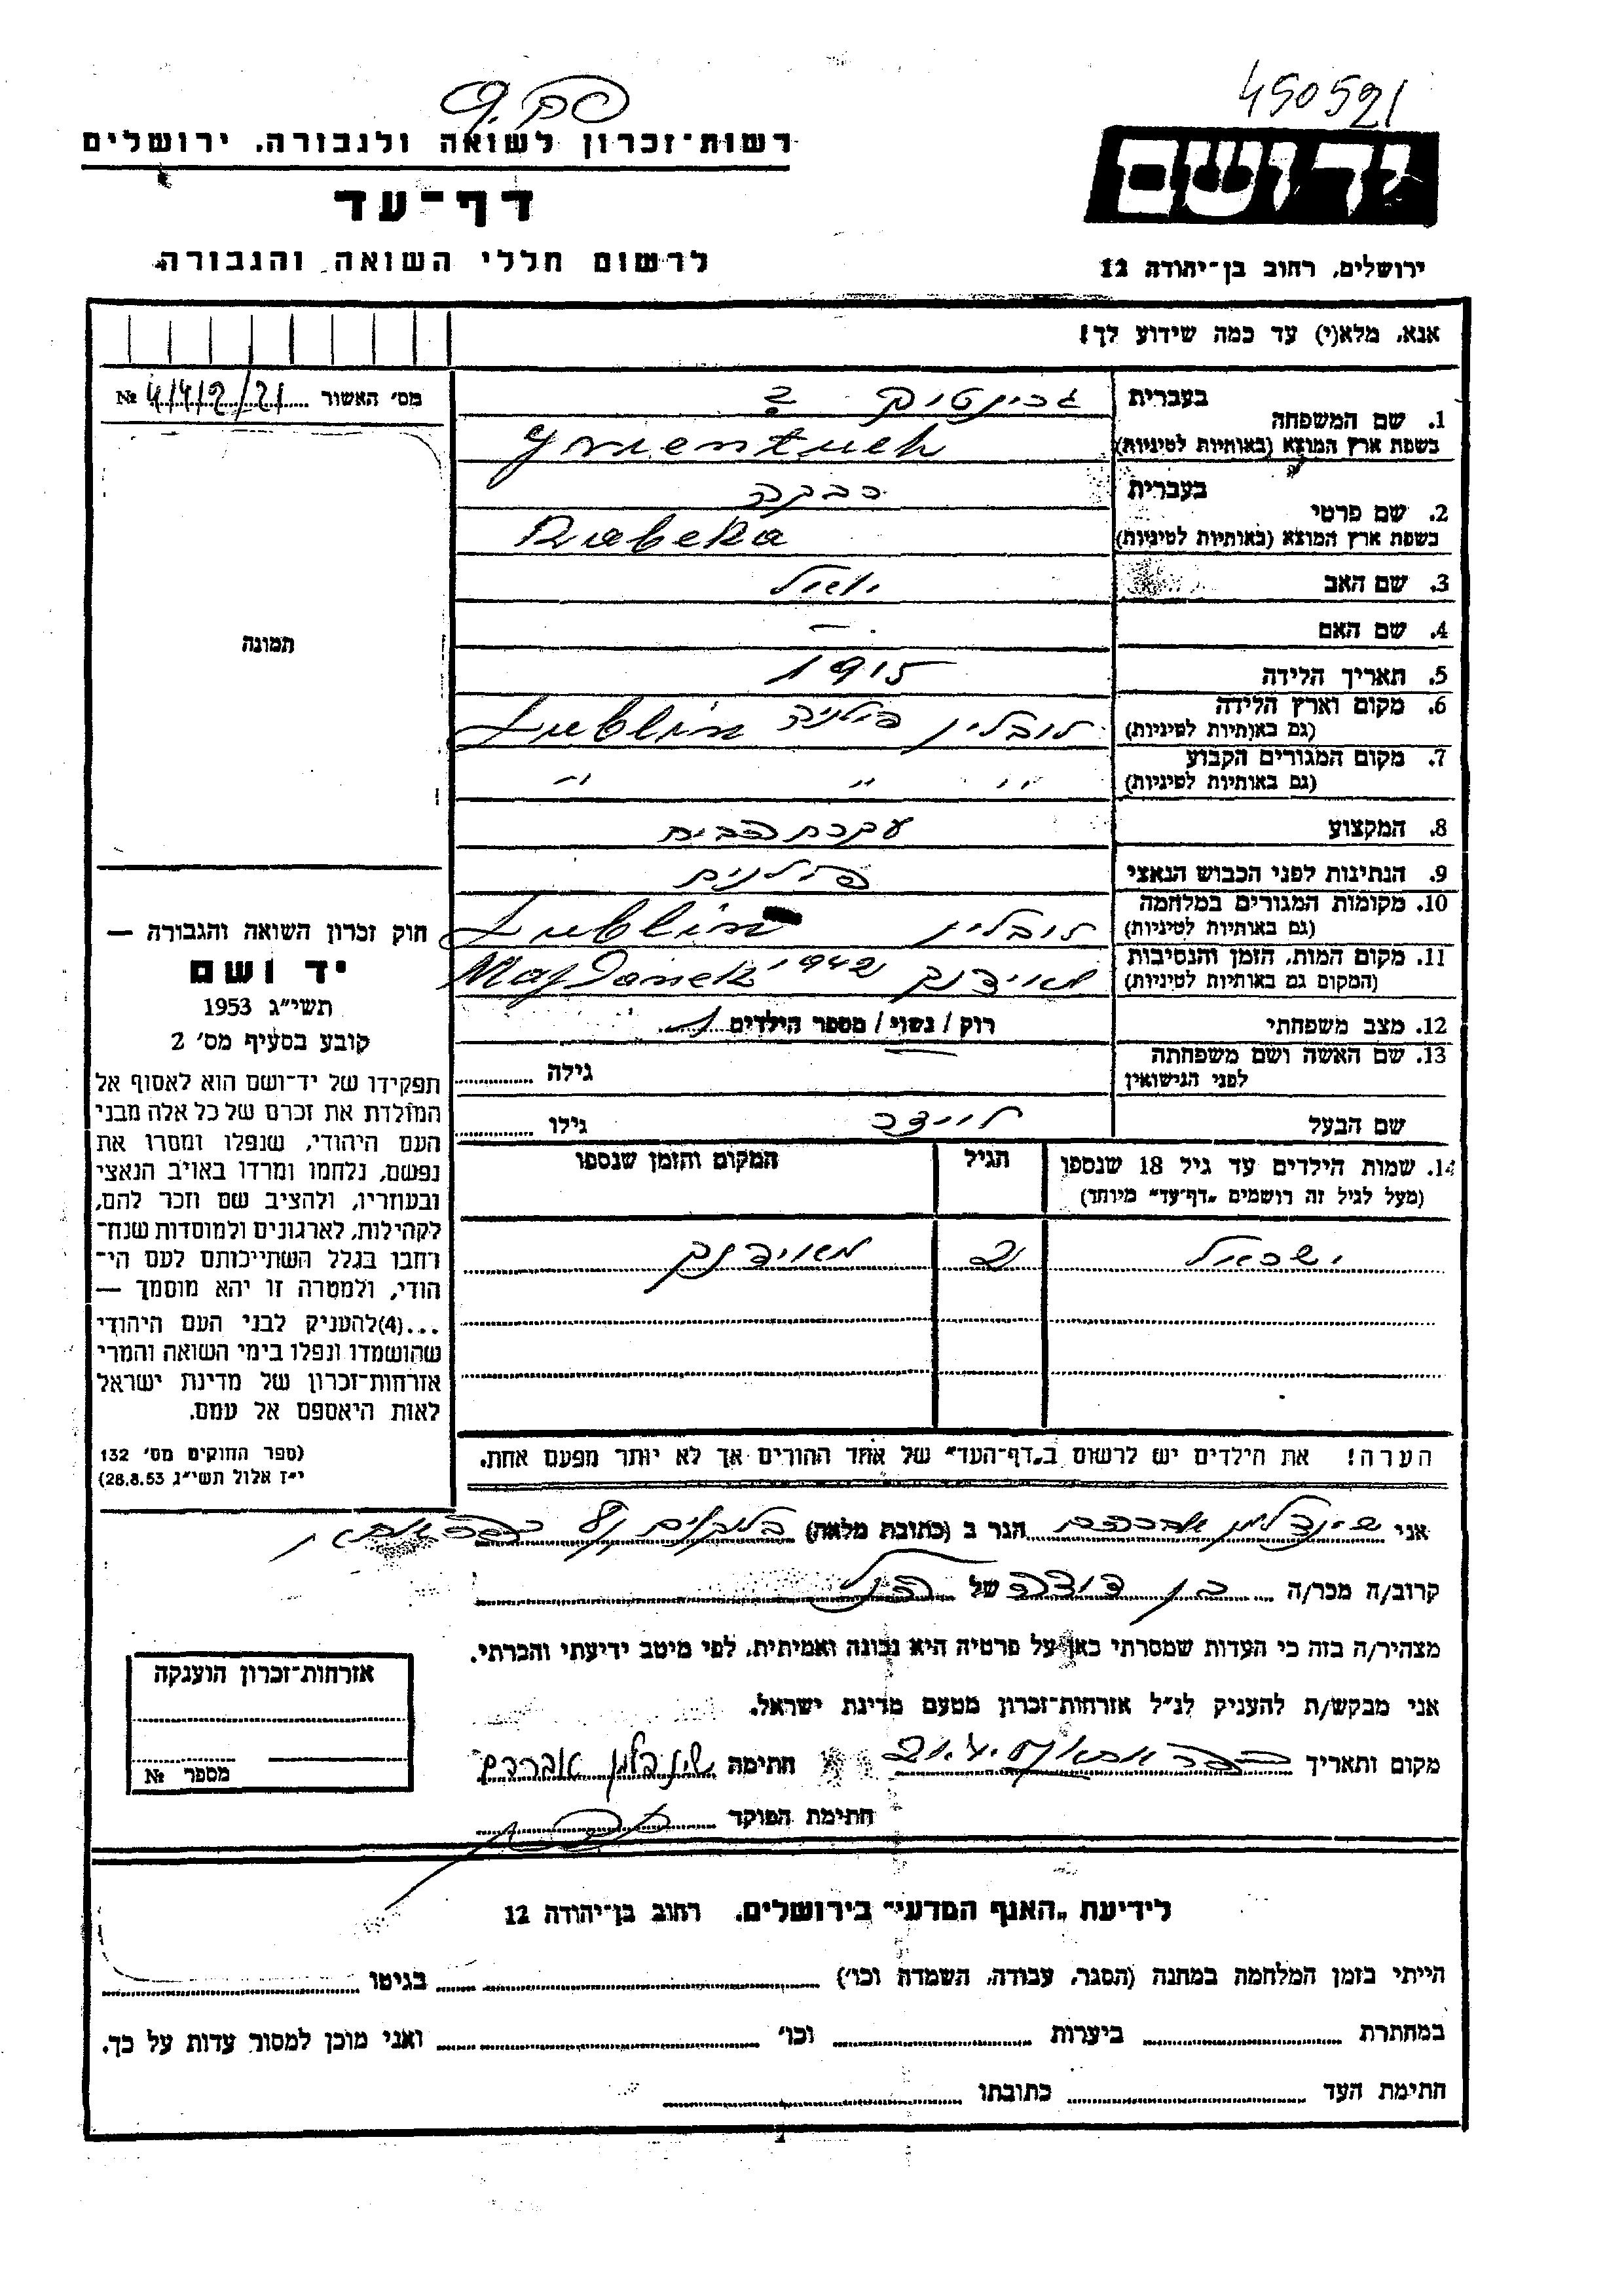 450521
רשות־זכרון לשואה ולגבורה, ירושלים
דף־עד
לרשום חללי השואה והגבורה
יד ושם
ירושלים, רחוב בן־יהודה 12
אנא, מלא(י) עד כמה שידוע לך!
מס׳ האשור № 4142/21
תמונה
1. שם המשפחה
בעברית
בשפת ארץ המוצא (באותיות לטיניות)
2. שם פרטי
בעברית רבקה
בשפת ארץ המוצא (באותיות לטיניות) Rabeka
3. שם האב
4. שם האם –
5. תאריך הלידה 1915
6. מקום וארץ הלידה לובלין פולניה Lublin
(גם באותיות לטיניות)
7. מקום המגורים הקבוע " " "
(גם באותיות לטיניות)
8. המקצוע עקרת הבית
9. הנתינות לפני הכבוש הנאצי פולנית
10. מקומות המגורים במלחמה לובלין Lublin
(גם באותיות לטיניות)
11. מקום המות, הזמן והנסיבות מאידנק 1942 Majdanek
(המקום גם באותיות לטיניות)
12. מצב משפחתי רוק / נשוי / מספר הילדים 1
13. שם האשה ושם משפחתה
לפני הנישואין
גילה
שם הבעל
גילו
14. שמות הילדים עד גיל 18 שנספו
(מעל לגיל זה רושמים „דף־עד" מיוחד)
הגיל
המקום והזמן שנספו
ישראל 2 מאידנק
הערה! את הילדים יש לרשום ב„דף־העד" של אחד ההורים אך לא יותר מפעם אחת.
חוק זכרון השואה והגבורה —
יד ושם
תשי״ג 1953
קובע בסעיף מס׳ 2
תפקידו של יד־ושם הוא לאסוף אל
המולדת את זכרם של כל אלה מבני
העם היהודי, שנפלו ומסרו את
נפשם, נלחמו ומרדו באויב הנאצי
ובעוזריו, ולהציב שם וזכר להם,
לקהילות, לארגונים ולמוסדות שנח־
רחבו בגלל השתייכותם לעם הי־
הודי, ולמטרה זו יהא מוסמך —
...(4)להעניק לבני העם היהודי
שהושמדו ונפלו בימי השואה והמרי
אזרחות־זכרון של מדינת ישראל
לאות היאספם אל עמם.
(ספר החוקים מס׳ 132
י״ז אלול תשי״ג 28.8.53)
אני שינדלמן אברהם הגר ב (כתובת מלאה)
קרוב/ה מכר/ה בן דודה של הנ״ל
מצהיר/ה בזה כי העדות שמסרתי כאן על פרטיה היא נכונה ואמיתית, לפי מיטב ידיעתי והכרתי.
אני מבקש/ת להעניק לנ״ל אזרחות־זכרון מטעם מדינת ישראל.
מקום ותאריך
חתימה שינדלמן אברהם
חתימת הפוקד
אזרחות־זכרון הוענקה
מספר №
לידיעת „האגף המדעי" בירושלים, רחוב בן־יהודה 12
הייתי בזמן המלחמה במחנה (הסגר, עבודה, השמדה וכו׳) בגיטו
במחתרת ביערות וכו׳ ואני מוכן למסור עדות על כך.
חתימת העד כתובתו